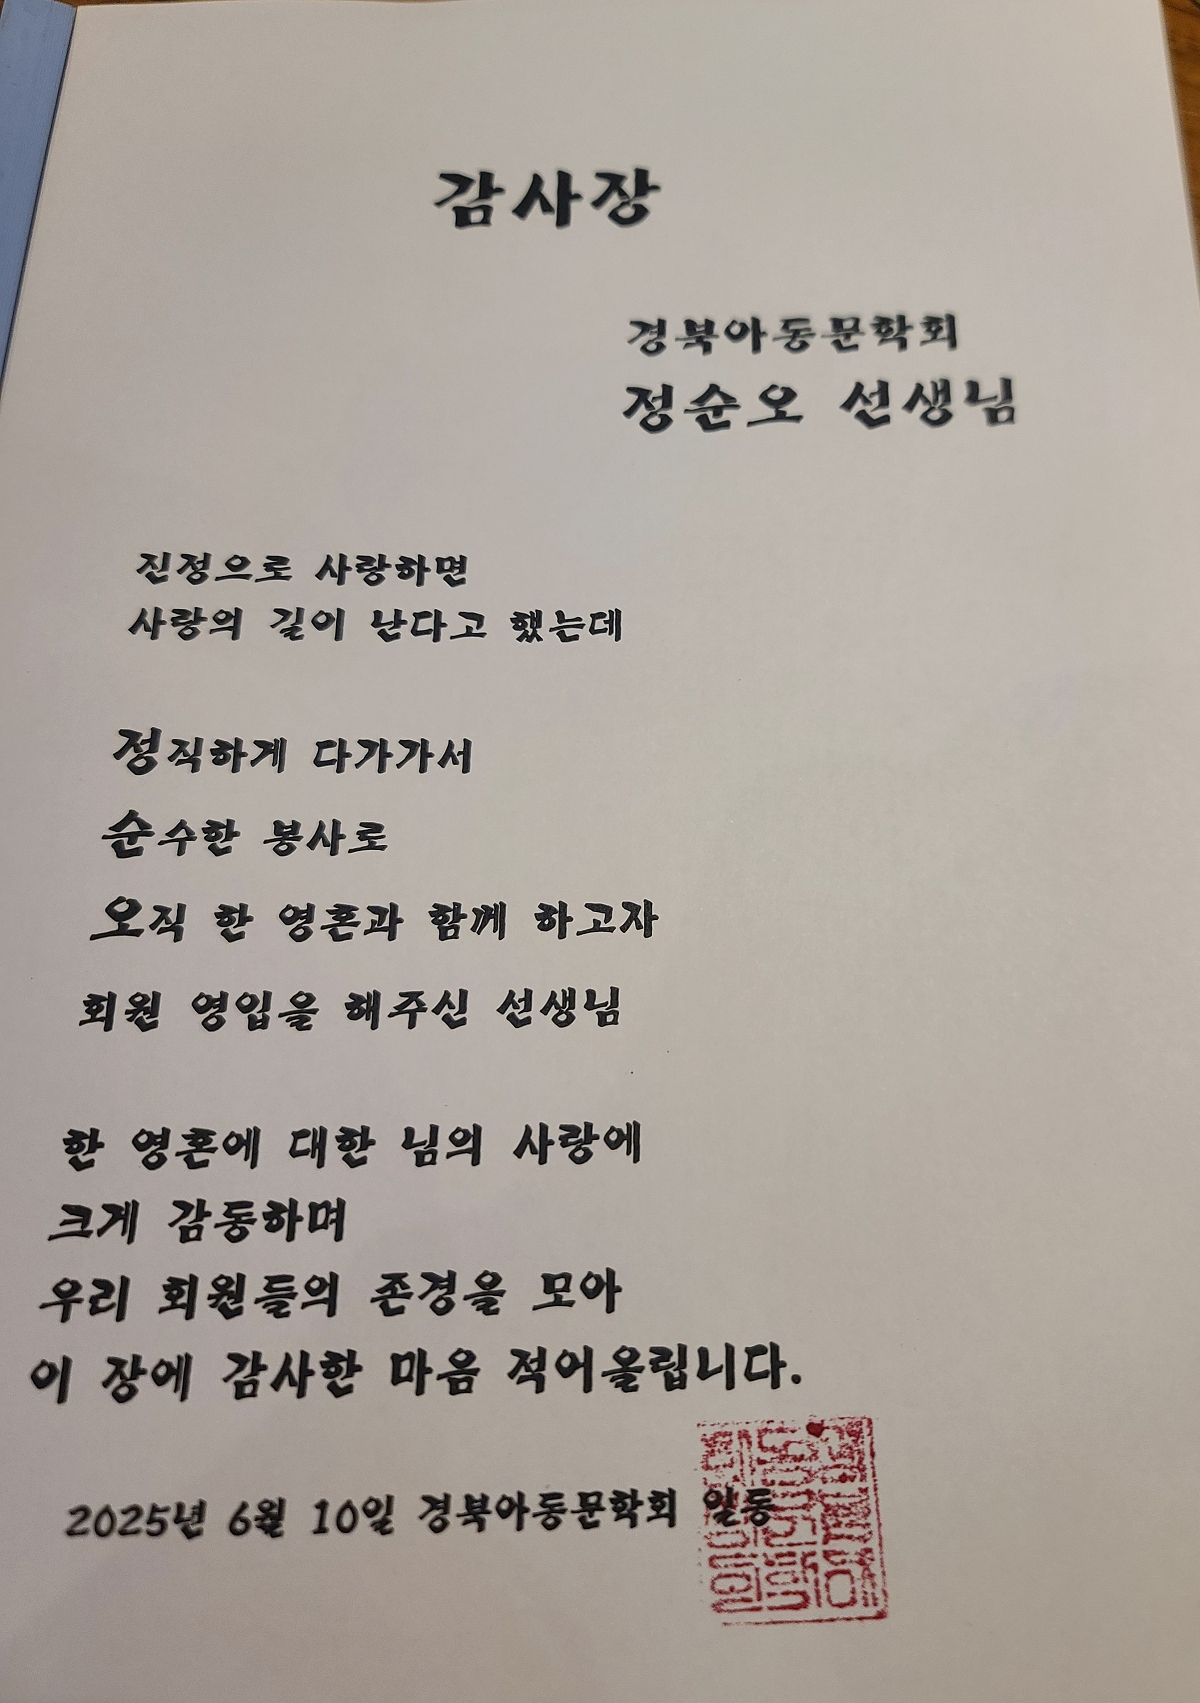 감사장
경북아동문학회
정순오 선생님
진정으로 사랑하면
사랑의 길이 난다고 했는데
정직하게 다가가서
순수한 봉사로
오직 한 영혼과 함께 하고자
회원 영입을 해주신 선생님
한 영혼에 대한 님의 사랑에
크게 감동하며
우리 회원들의 존경을 모아
이 장에 감사한 마음 적어올립니다.
2025년 6월 10일 경북아동문학회 일동